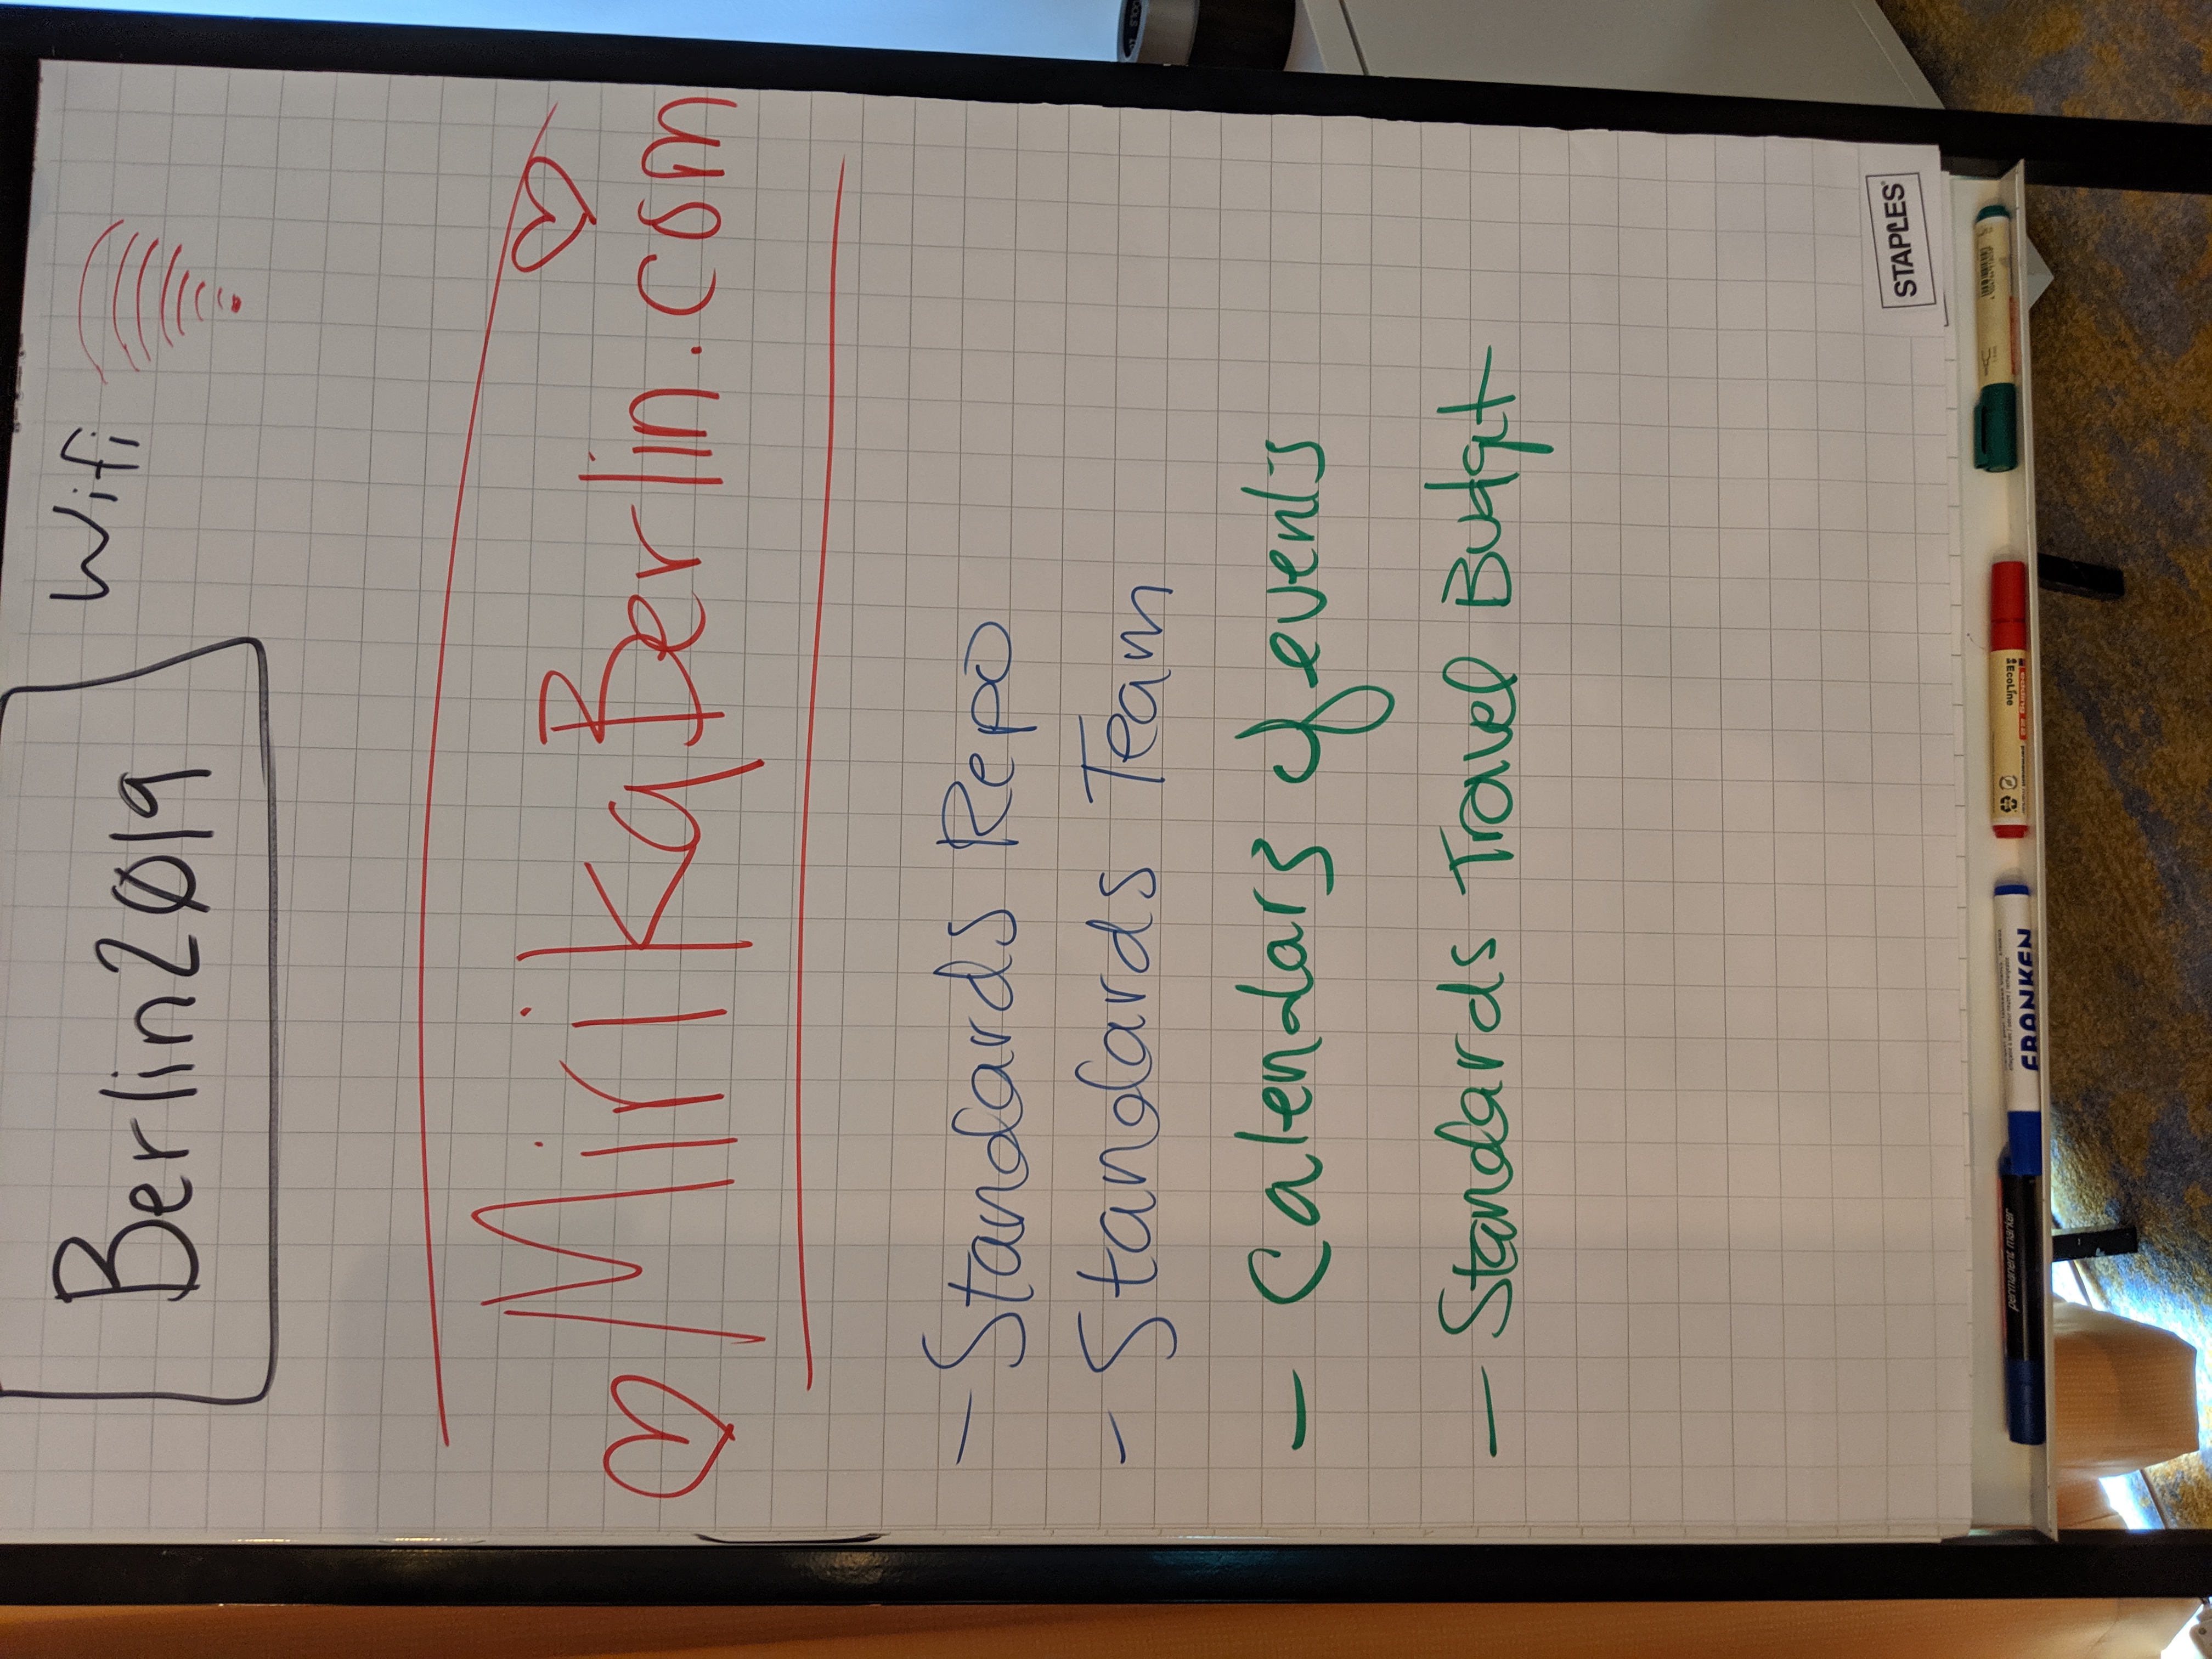 Berlin2019 Wifi
MirikaBerlin.com
- Standards Repo
- Standards Team
- Calendars of events
- Standards Travel Budget
STAPLES
permanent marker
FRANKEN
EcoLine
edding 22
permanent marker